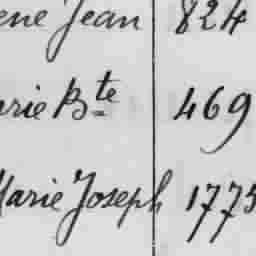 ene Jean 824
arie Bte 469
Marie Joseph 1775